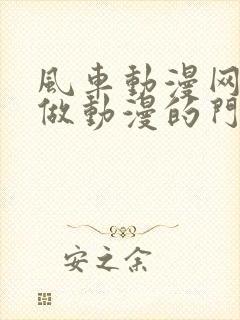 風車動漫网
做動漫的門
安之余